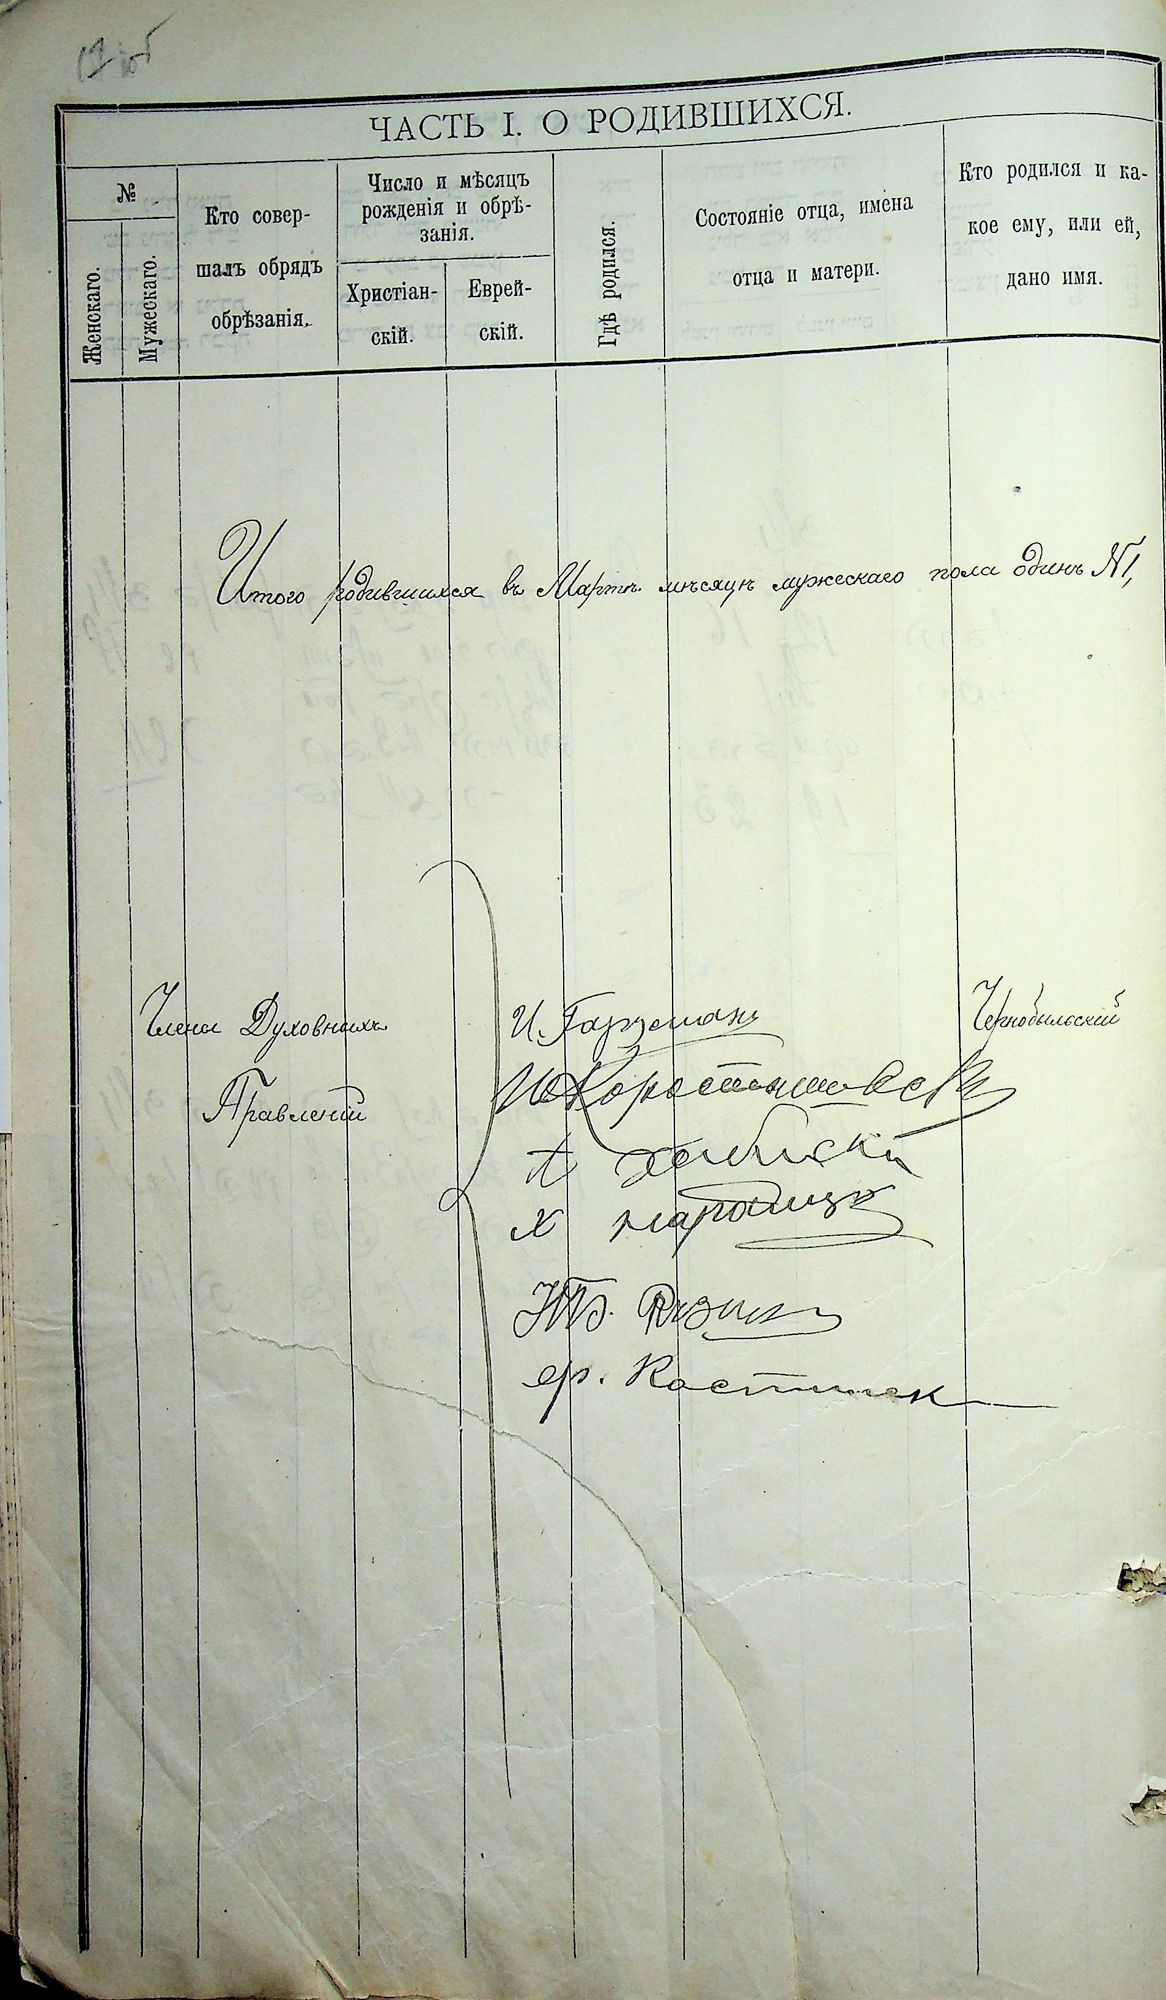 ЧАСТЬ I. О РОДИВШИХСЯ.
№
Женскаго.
Мужескаго.
Кто совер-
шалъ обрядъ
обрѣзанія.
Число и мѣсяцъ
рожденія и обрѣ-
занія.
Христіан-
скій.
Еврей-
скій.
Гдѣ родился.
Состояніе отца, имена
отца и матери.
Кто родился и ка-
кое ему, или ей,
дано имя.
Итого родившихся въ Мартѣ мѣсяцѣ мужескаго пола одинъ №1,
Члены Духовныхъ
Правленій
И. Гарцман
Чернобыльскій
Коростышевск
Х
ер. Костинск